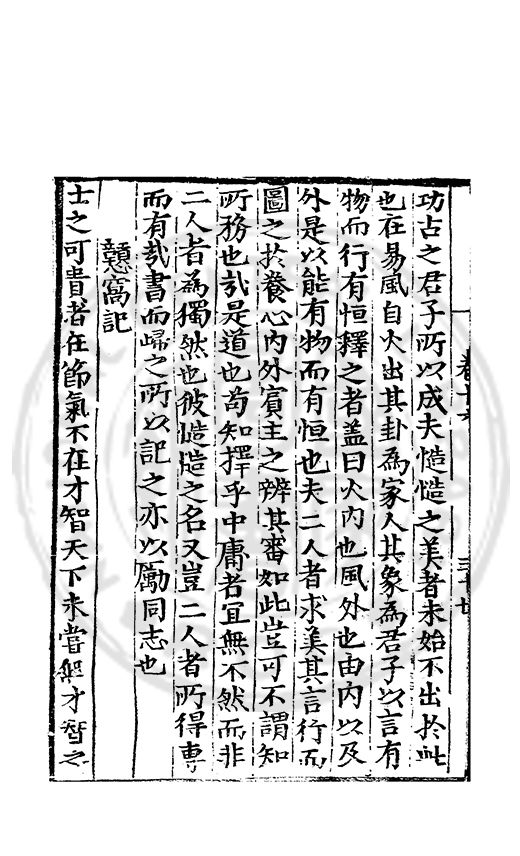 卷十六
功古之君子所以成夫慥慥之美者未始不出於此
也在易風自火出其卦為家人其象為君子以言有
物而行有恒釋之者盖曰火内也風外也由内以及
外是以能有物而有恒也夫二人者求美其言行而
圖之於養心内外賓主之辨其審如此豈可不謂知
所務也㢤是道也茍知擇乎中庸者冝無不然而非
二人者為獨然也彼慥慥之名又豈二人者所得專
而有㢤書而歸之所以記之亦以勵同志也
戇窩記
士之可貴者在節氣不在才智天下未嘗無才智之